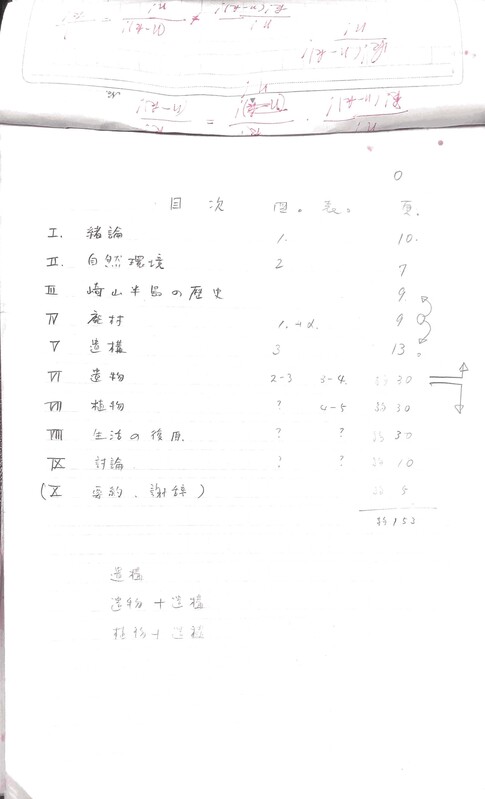 0
目次 図。 表。 頁.
I. 緒論 1. 10.
II. 自然環境 2 7
III 崎山半島の歴史 9.
IV 廃村 1.+α. 9
V 遺構 3 13.
VI 遺物 2-3 3-4. 約30
VII 植物 ? 4-5 約30
VIII 生活の復原. ? ? 約30
IX 討論 ? ? 約10
(X 要約、謝辞) 約5
約153
遺構
遺物+遺構
植物+遺構